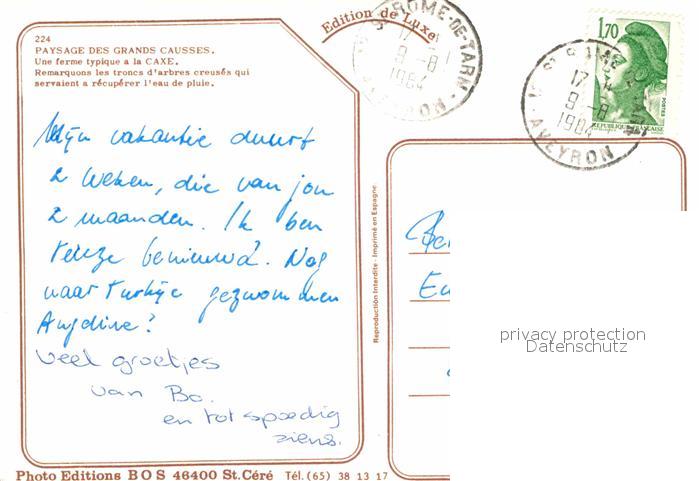 224
PAYSAGE DES GRANDS CAUSSES.
Une ferme typique a la CAXE.
Remarquons les troncs d'arbres creusés qui
servaient a récupérer l'eau de pluie.
Edition de Luxe
ROME-DE-TARN
17 H
9-8
1984
AVEYRON
1,70
POSTES
REPUBLIQUE FRANÇAISE
17 H
9-8
1984
AVEYRON
Mijn vakantie duurt
2 weken, die van jou
2 maanden. Ik ben
reuze benieuwd. Nog
naar Turkije gezwommen
Angeline?
Veel groetjes
van Bo.
en tot spoedig
ziens.
Reproduction Interdite - Imprimé en Espagne
privacy protection
Datenschutz
Photo Editions BOS 46400 St.Céré Tél.(65) 38 13 17